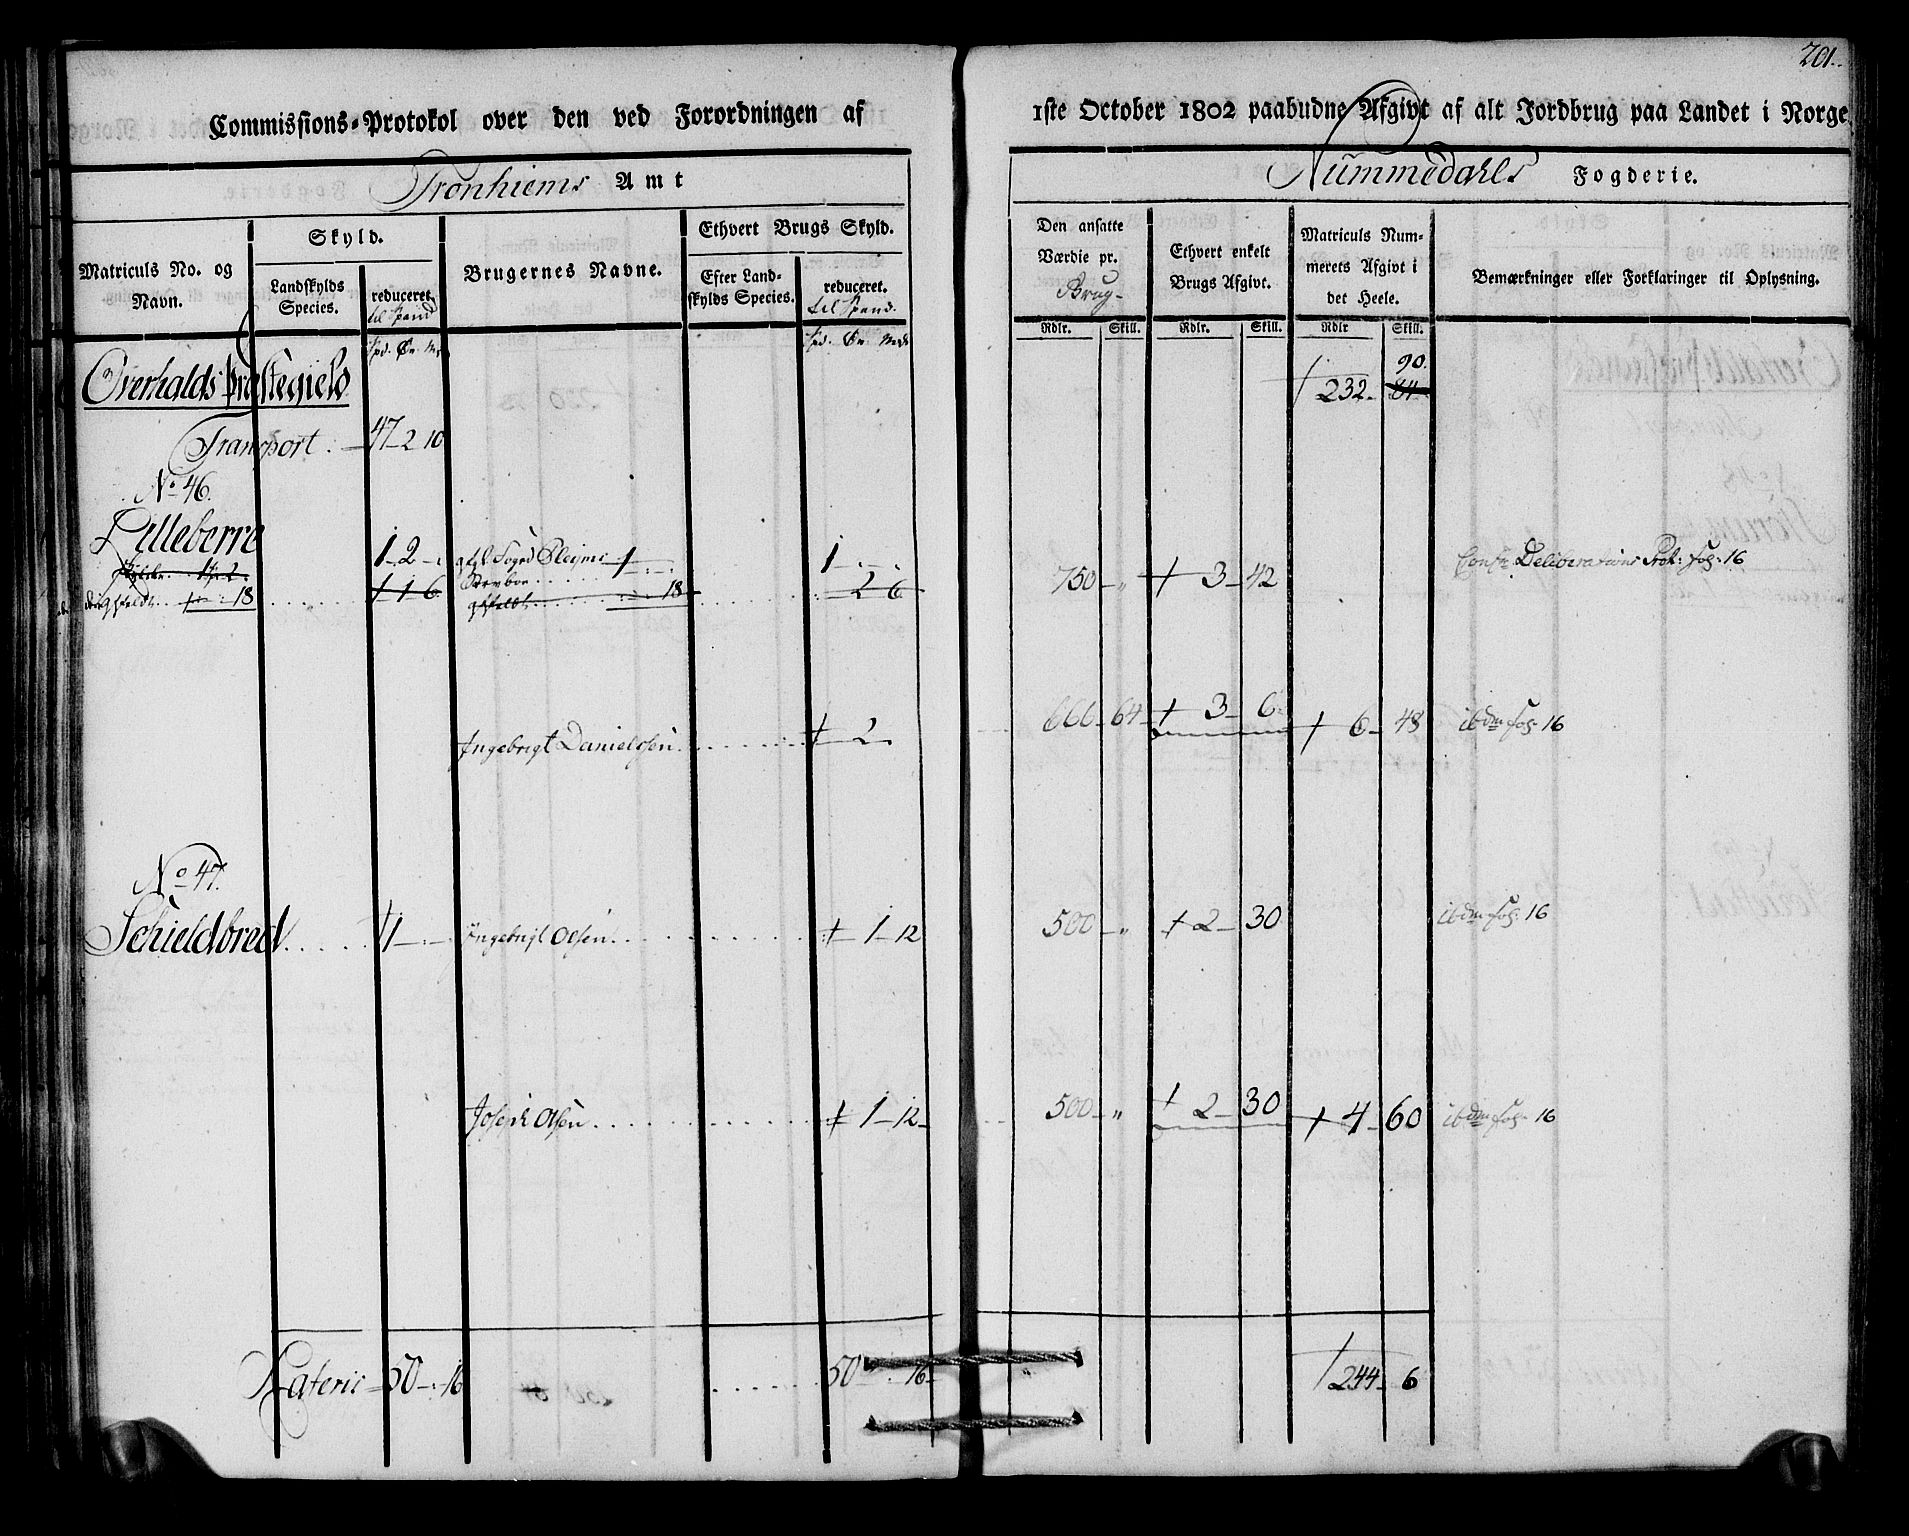 201.
Commissions-Protokol over den ved Forordningen af 1ste October 1802 paabudne Afgivt af alt Jordbrug paa Landet i Norge
Tronhiems Amt
Nummedahls Fogderie.
Matriculs No. og Navn.
Skyld.
Landskylds Species.
reduceret. til Spand
Brugernes Navne.
Ethvert Brugs Skyld.
Efter Landskylds Species.
reduceret. til Spand.
Den ansatte Værdie pr. Brug-
Ethvert enkelt Brugs Afgivt.
Matriculs Nummerets Afgivt i det Heele.
Bemærkninger eller Forklaringer til Oplysning.
Rdlr. Skill. Rdlr. Skill. Rdlr Skill.
Overhalds Præstegield
90.
232. 84
Transport: 47 2 10
No 46.
Lilleberre
1 2
1 1 6
18
1
18
1
2 6
750 " 3 42
Deliberations Prot: fol: 16
Ingebrigt Danielssen 2
666 64 3 6 6 48 ibdm fol: 16
No 47.
Schieldbred 1 Ingebrigt Olsen 1 12
500 " 2 30 ibdm fol: 16
Joseph Olsen 1 12
500 " 2 30 4 60 ibdm fol: 16
Lateris 50 16 50 16
244 6